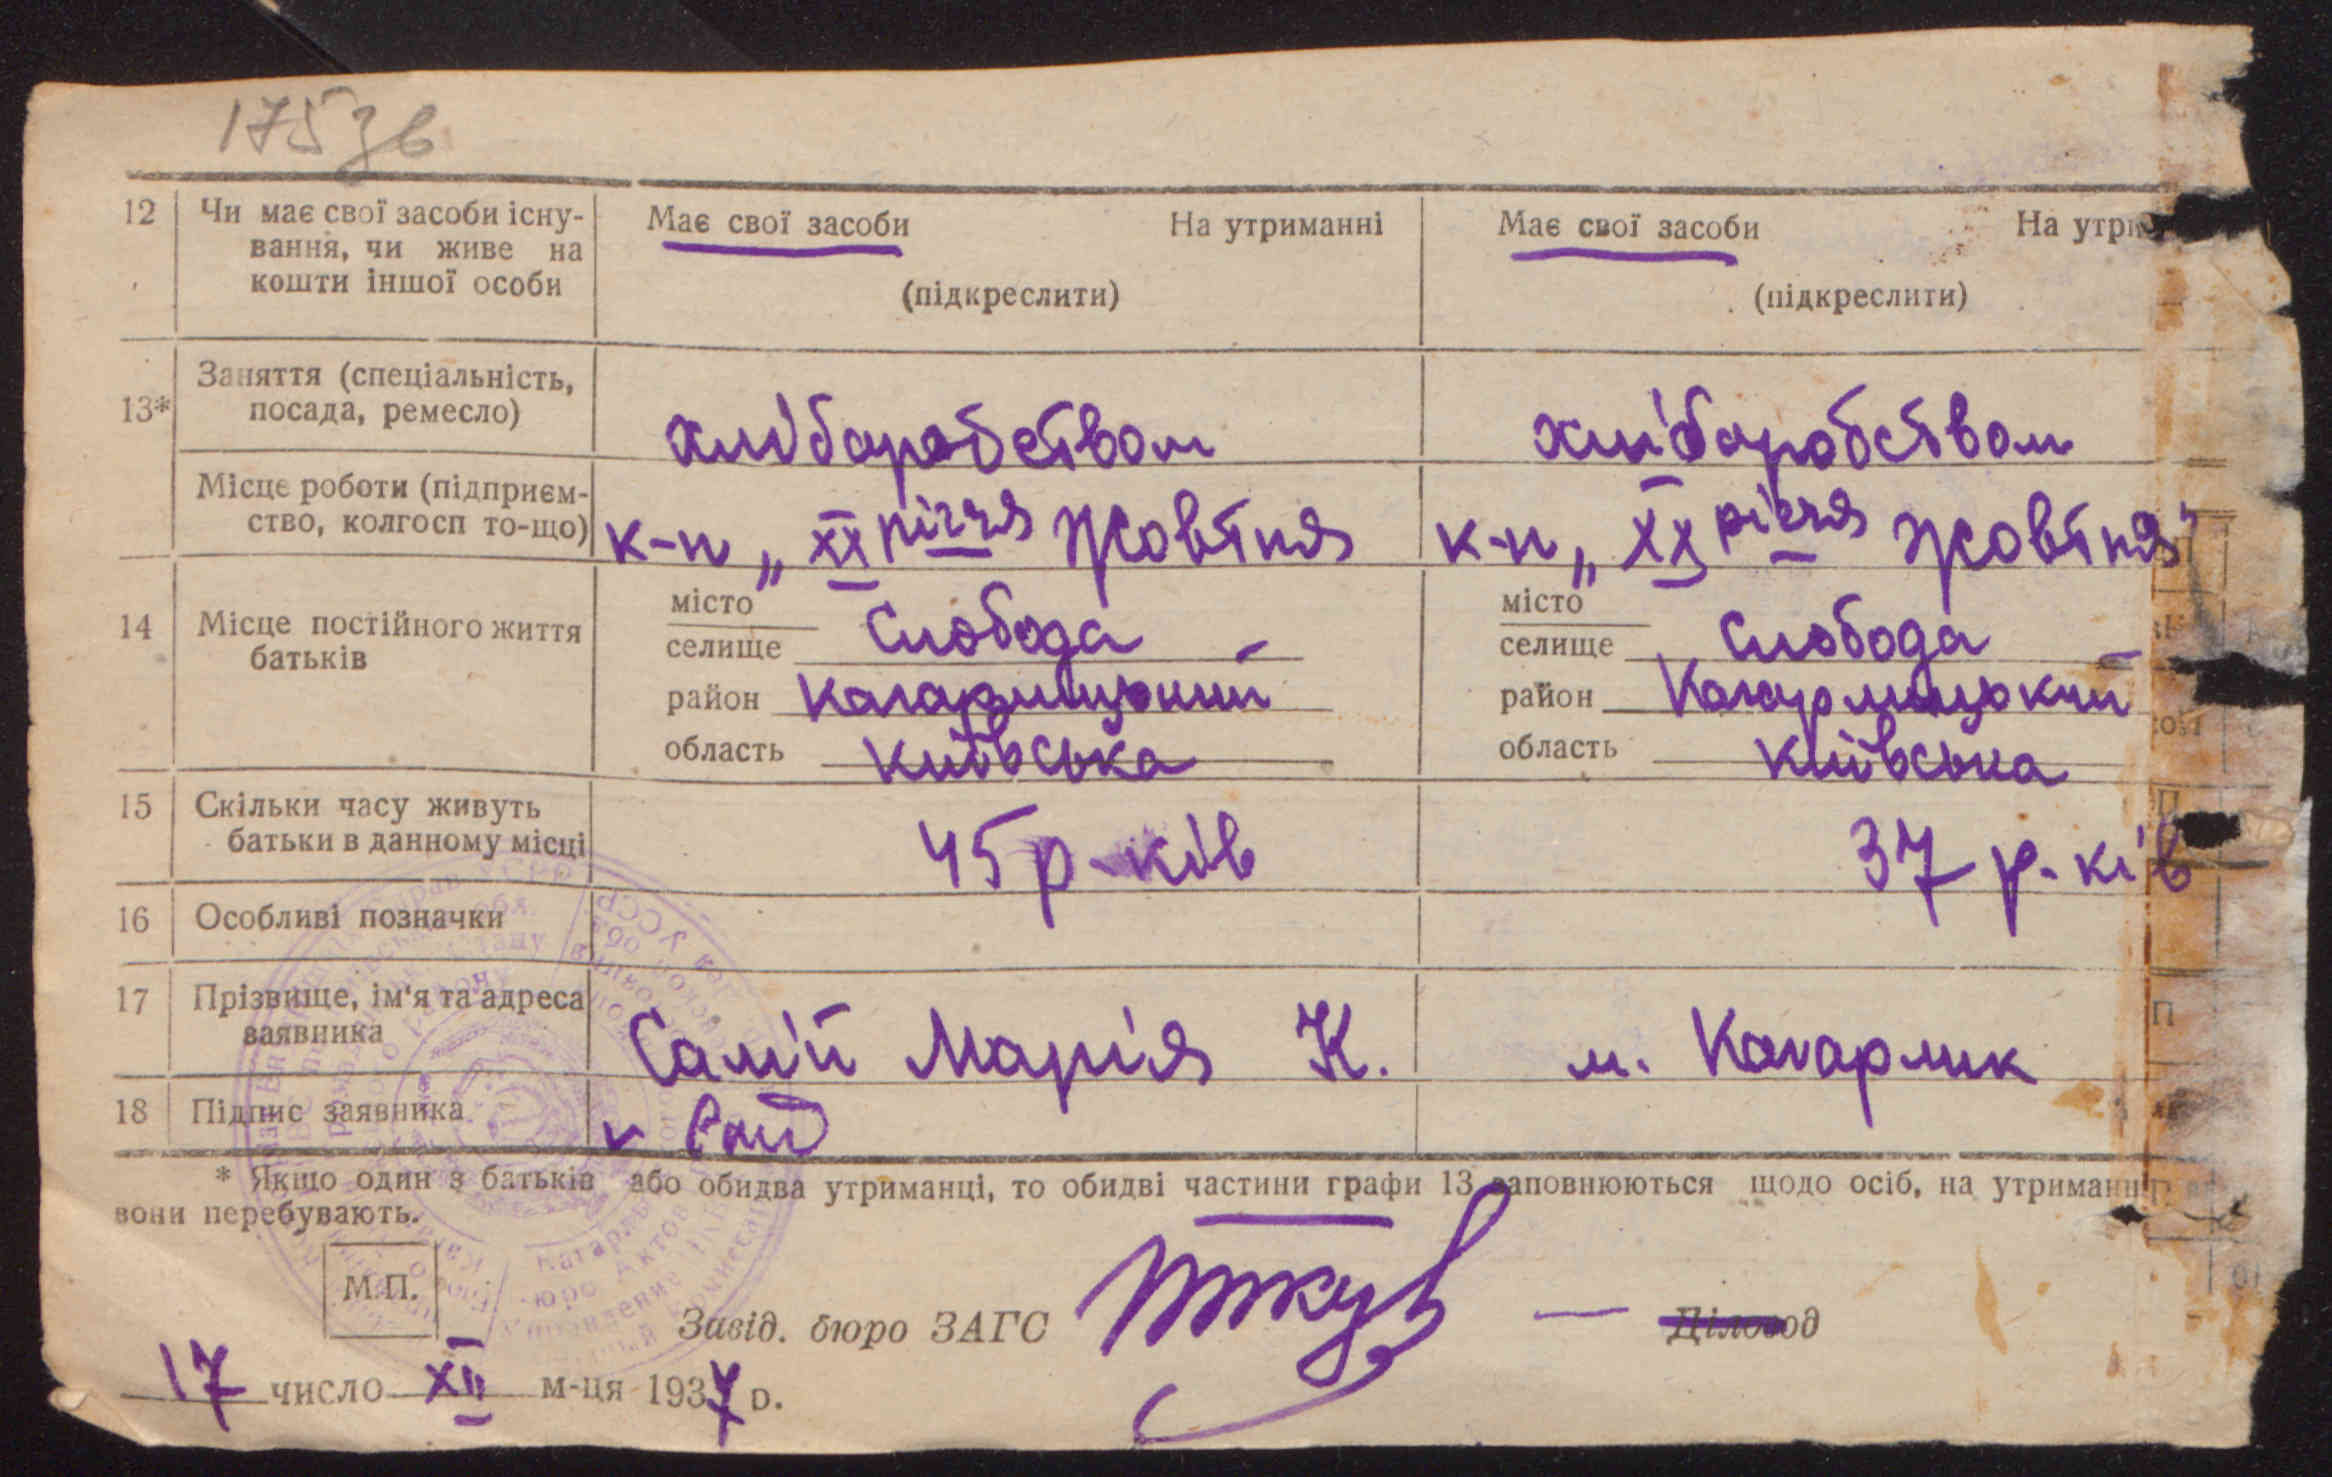 175 зв
12 Чи має свої засоби існу-
вання, чи живе на
кошти іншої особи
Має свої засоби На утриманні
(підкреслити)
Має свої засоби На утри
(підкреслити)
13* Заняття (спеціальність,
посада, ремесло)
хліборобством
хліборобством
Місце роботи (підприєм-
ство, колгосп то-що)
к-п „XX річчя Жовтня
к-п „XX річчя Жовтня"
14 Місце постійного життя
батьків
місто
селище Слобода
район Кагарлицький
область Київська
місто
селище Слобода
район Кагарлицький
область Київська
15 Скільки часу живуть
батьки в данному місці
45 р-ків
37 р-ків
16 Особливі позначки
17 Прізвище, ім'я та адреса
заявника
Салій Марія К. м. Кагарлик
18 Підпис заявника
* Якщо один з батьків або обидва утриманці, то обидві частини графи 13 заповнюються щодо осіб, на утриманні
вони перебувають.
М.П.
Завід. бюро ЗАГС
Діловод
17 число XII м-ця 1937 р.